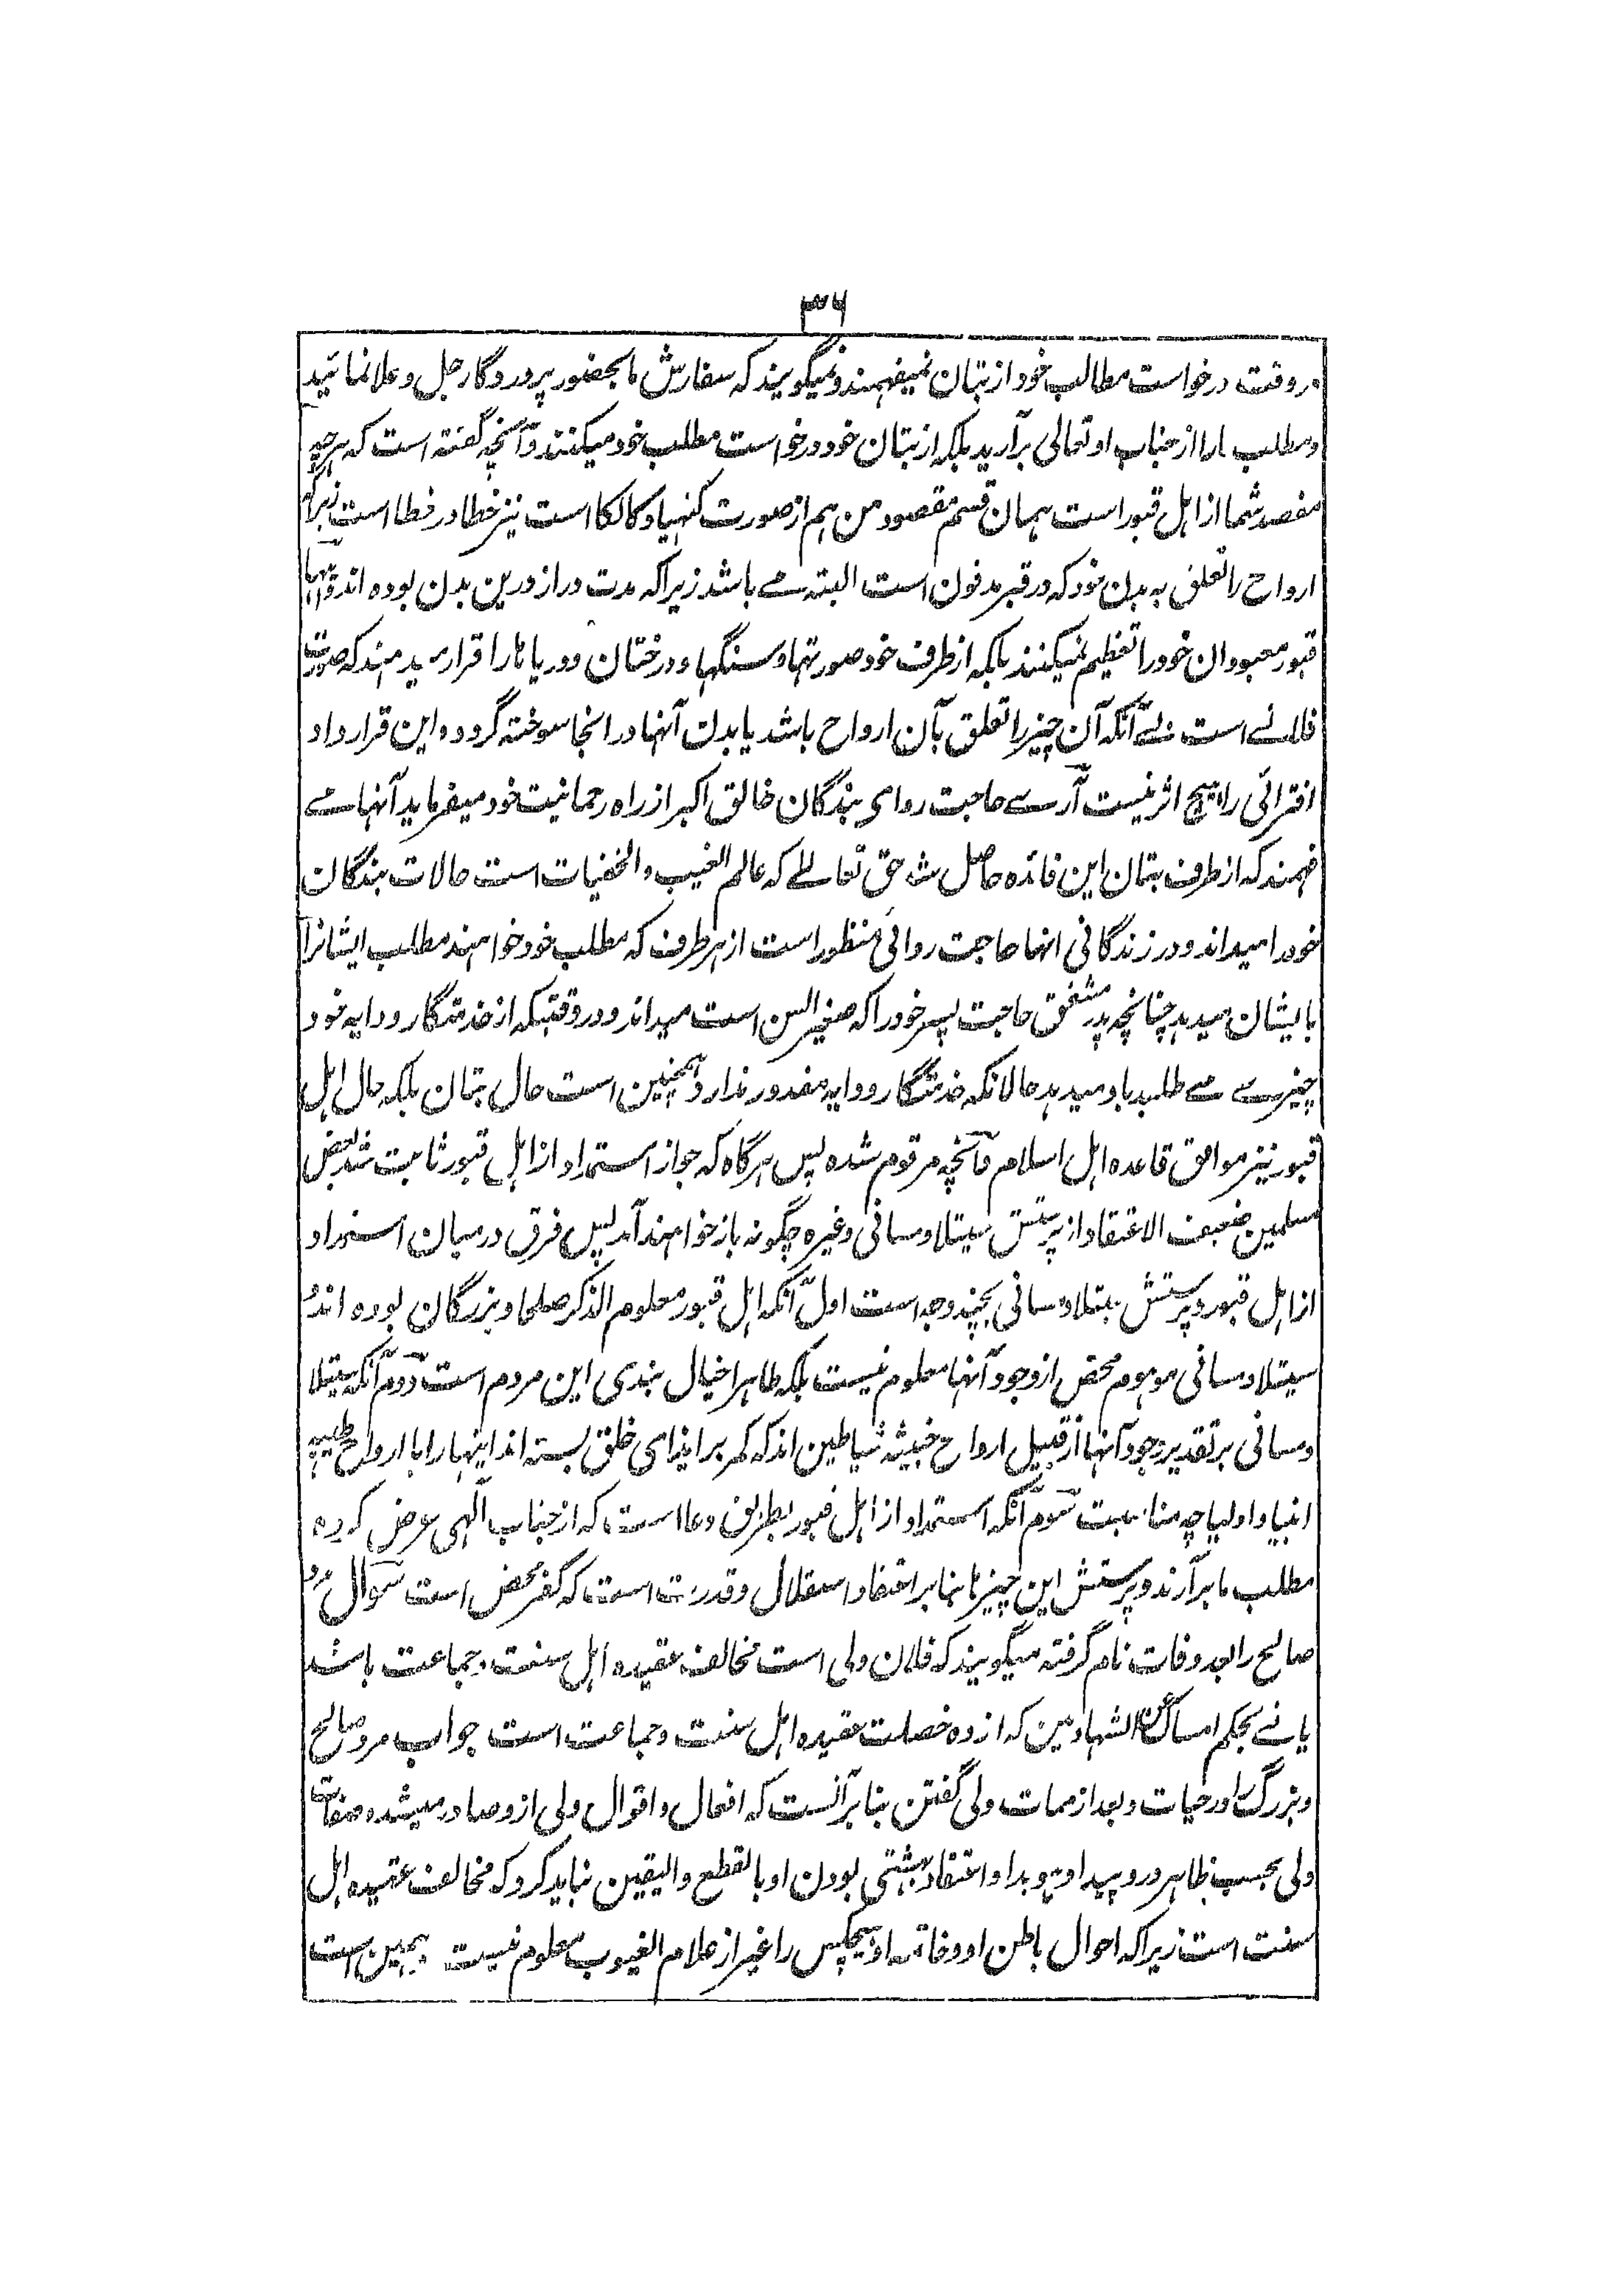 ۳۶
در وقت درخواست مطالب خود از بتان نمیفهمند و نمیگویند که سفارش ما بحضور پروردگار جل و علا نمائید
و مطلب مارا از جناب او تعالی برآرید بلکه از بتان خود درخواست مطلب خود میکنند و آنچه گفته است که هرچه
مقصد شما از اهل قبور است همان قسم مقصود من هم از صورت کنهیا و کالکا است نیز خطا در خطا است زیراکه
ارواح را تعلق به بدن خود که در قبر مدفون است البته مے باشد زیراکه مدت دراز درین بدن بوده اند و آنها
قبور معبودان خود را تعظیم نمیکنند بلکه از طرف خود صورتها و سنگها و درختان و دریاها را قرار میدهند که صورت
فلانے است بے آنکه آن چیز را تعلق بآن ارواح باشد یا بدن آنها در آنجا سوخته گردد و این قرارداد
افترائی را هیچ اثر نیست آرے حاجت روای بندگان خالق اکبر از راه رحمانیت خود میفرماید آنها مے
فهمند که از طرف بتان این فائده حاصل شد حق تعالے که عالم الغیب والخفیات است حالات بندگان
خود را میداند و در زندگانی انها حاجت روائی منظور است از هر طرف که مطلب خود خواهند مطلب ایشانرا
بایشان میدهد چنانچه پدر مشفق حاجت پسر خود را که صغیر السن است میداند و در وقتیکه از خدمتگار و دایه خود
چیزے مے طلبد باو میدهد حالانکه خدمتگار و دایه مقدور ندارد همچنین است حال بتان بلکه حال اهل
قبور نیز موافق قاعده اهل اسلام و آنچه مرقوم شده پس هرگاه که جواز استمداد از اهل قبور ثابت شد بعض
مسلمین ضعیف الاعتقاد از پرستش سیتلا و مسانی وغیره چگونه باز خواهند آمد پس فرق درمیان استمداد
از اهل قبور و پرستش سیتلا و مسانی بچند وجه است اول آنکه اهل قبور معلوم الذکر صلحا و بزرگان بوده اند و
سیتلا و مسانی موهوم محض از وجود آنها معلوم نیست بلکه ظاهرا خیال بندی این مردم است دوم آنکه سیتلا
و مسانی برتقدیر وجود آنها از قبیل ارواح خبیثه شیاطین اند که کمر بر ایذای خلق بسته اند اینها را با ارواح طیبه
انبیا و اولیا چه مناسبت سوم آنکه استمداد از اهل قبور بطریق دعا است که از جناب الهی عرض کرده
مطلب ما برآرند و پرستش این چیزها بنابر اعتقاد استقلال و قدرت است که کفر محض است سوال مرد
صالح را بعد وفات نام گرفته میگویند که فلان ولی است مخالف عقیده اهل سنت و جماعت باشد
یا نے بحکم امساک عن الشهادتین که از ده خصلت عقیده اهل سنت و جماعت است جواب مرد صالح
و بزرگ را در حیات و بعد از ممات ولی گفتن بنا برآنست که افعال و اقوال ولی ازو صادر میشده صفات
ولی بحسب ظاهر درو پیدا و هویدا و اعتقاد بهشتی بودن او بالقطع و الیقین نباید کرد که مخالف عقیده اهل
سنت است زیراکه احوال باطن او و خاتمه او هیچکس را غیر از علام الغیوب معلوم نیست همین است